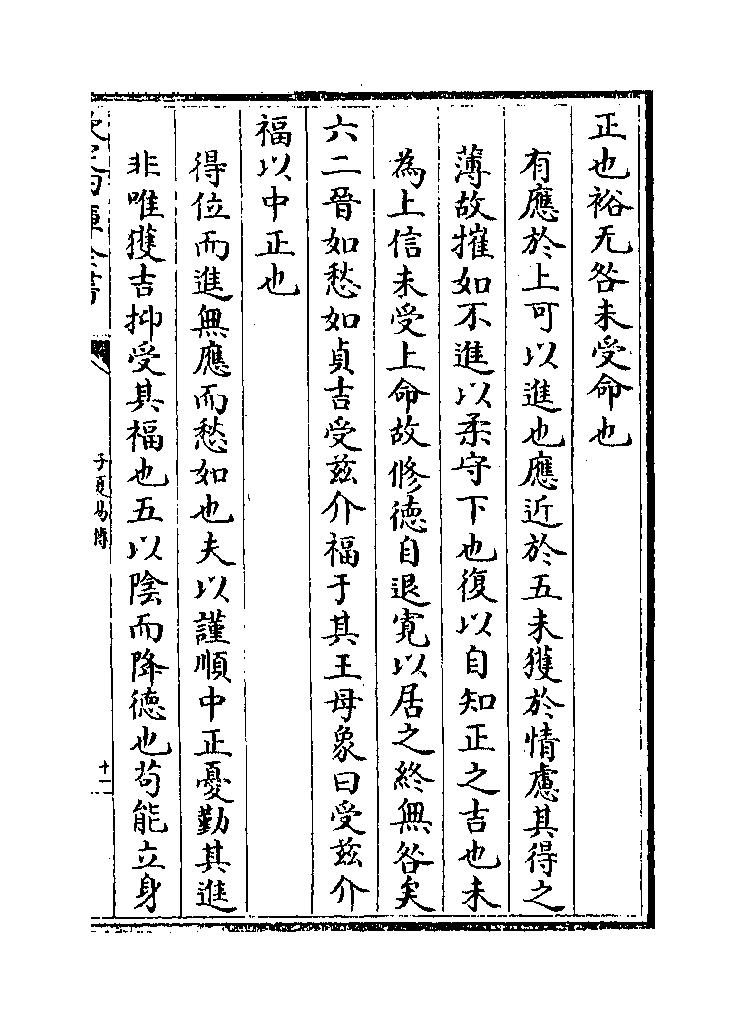 正也裕无咎未受命也
有應於上可以進也應近於五未獲於情慮其得之
薄故摧如不進以柔守下也復以自知正之吉也未
為上信未受上命故修徳自退寛以居之終無咎矣
六二晉如愁如貞吉受兹介福于其王母象曰受兹介
福以中正也
得位而進無應而愁如也夫以謹順中正憂勤其進
非唯獲吉抑受其福也五以陰而降徳也苟能立身
子夏易傳
十一